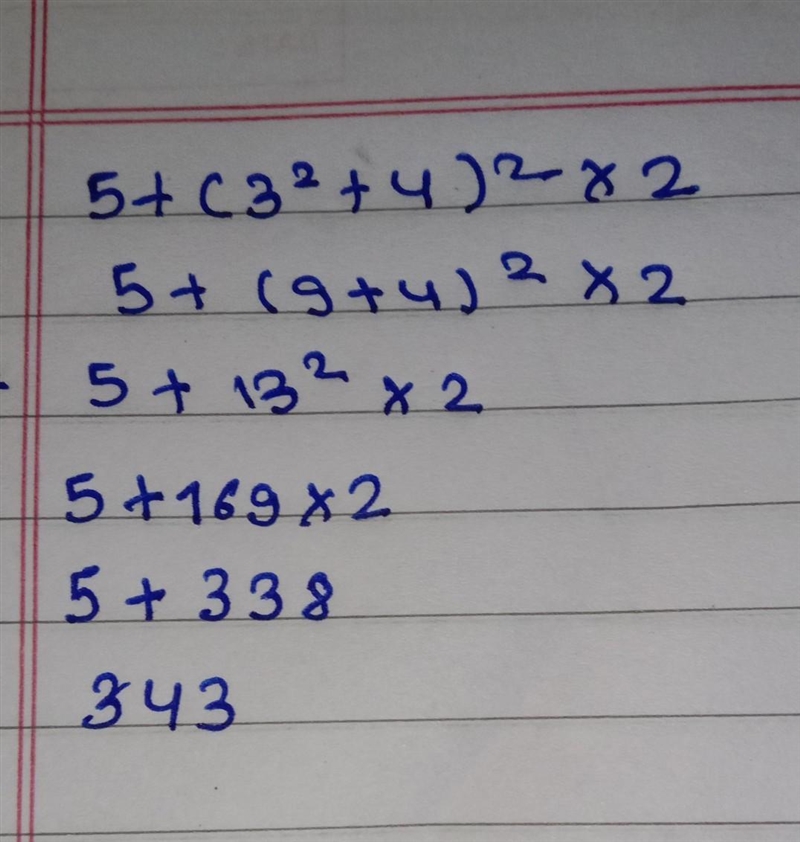 5+(3²+4)²×2
5+(9+4)²×2
5+13²×2
5+169×2
5+338
343